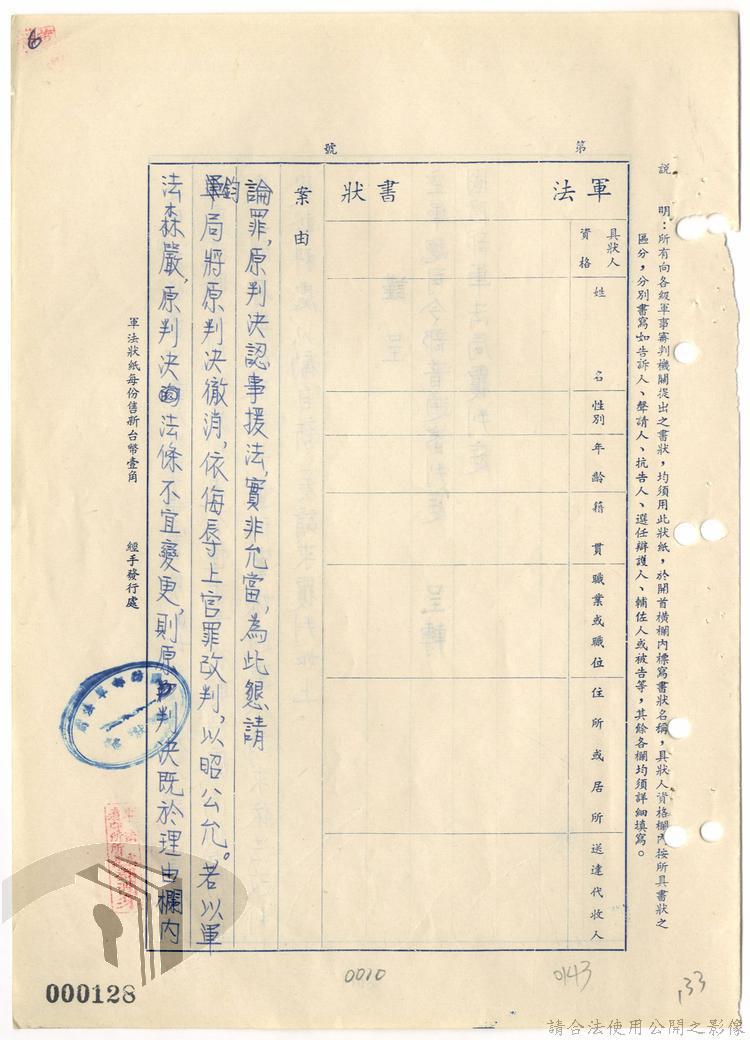 6
第　　號
說　明：所有向各級軍事審判機關提出之書狀，均須用此狀紙，於開首橫欄內標寫書狀名稱，具狀人資格欄內按所具書狀之
區分，分別書寫如告訴人、聲請人、抗告人、選任辯護人、輔佐人或被告等，其餘各欄均須詳細填寫。
軍法　書狀
具狀人
資格
姓名
性別
年齡
籍貫
職業或職位
住所或居所
送達代收人
案由
論罪，原判決認事援法，實非允當，為此懇請
鈞局將原判決徹消，依侮辱上官罪改判，以昭公允。若以軍
法森嚴，原判決法條不宜變更，則原判決既於理由欄內
軍法狀紙每份售新台幣壹角　經手發行處
000128
0010
0143
133
請合法使用公開之影像